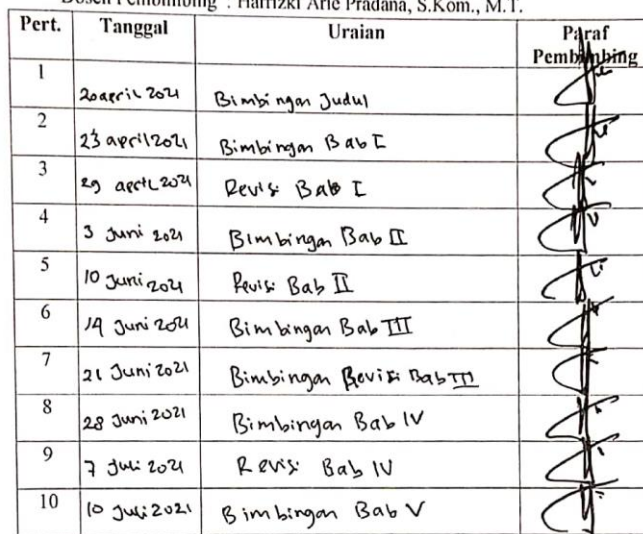 Dosen Pembimbing : Harrizki Arie Pradana, S.Kom., M.T.
Pert. Tanggal Uraian Paraf Pembimbing
1 20 april 2021 Bimbingan Judul
2 23 april 2021 Bimbingan Bab I
3 29 april 2021 Revisi Bab I
4 3 Juni 2021 Bimbingan Bab II
5 10 Juni 2021 Revisi Bab II
6 14 Juni 2021 Bimbingan Bab III
7 21 Juni 2021 Bimbingan Revisi Bab III
8 28 Juni 2021 Bimbingan Bab IV
9 7 Juli 2021 Revisi Bab IV
10 10 Juli 2021 Bimbingan Bab V